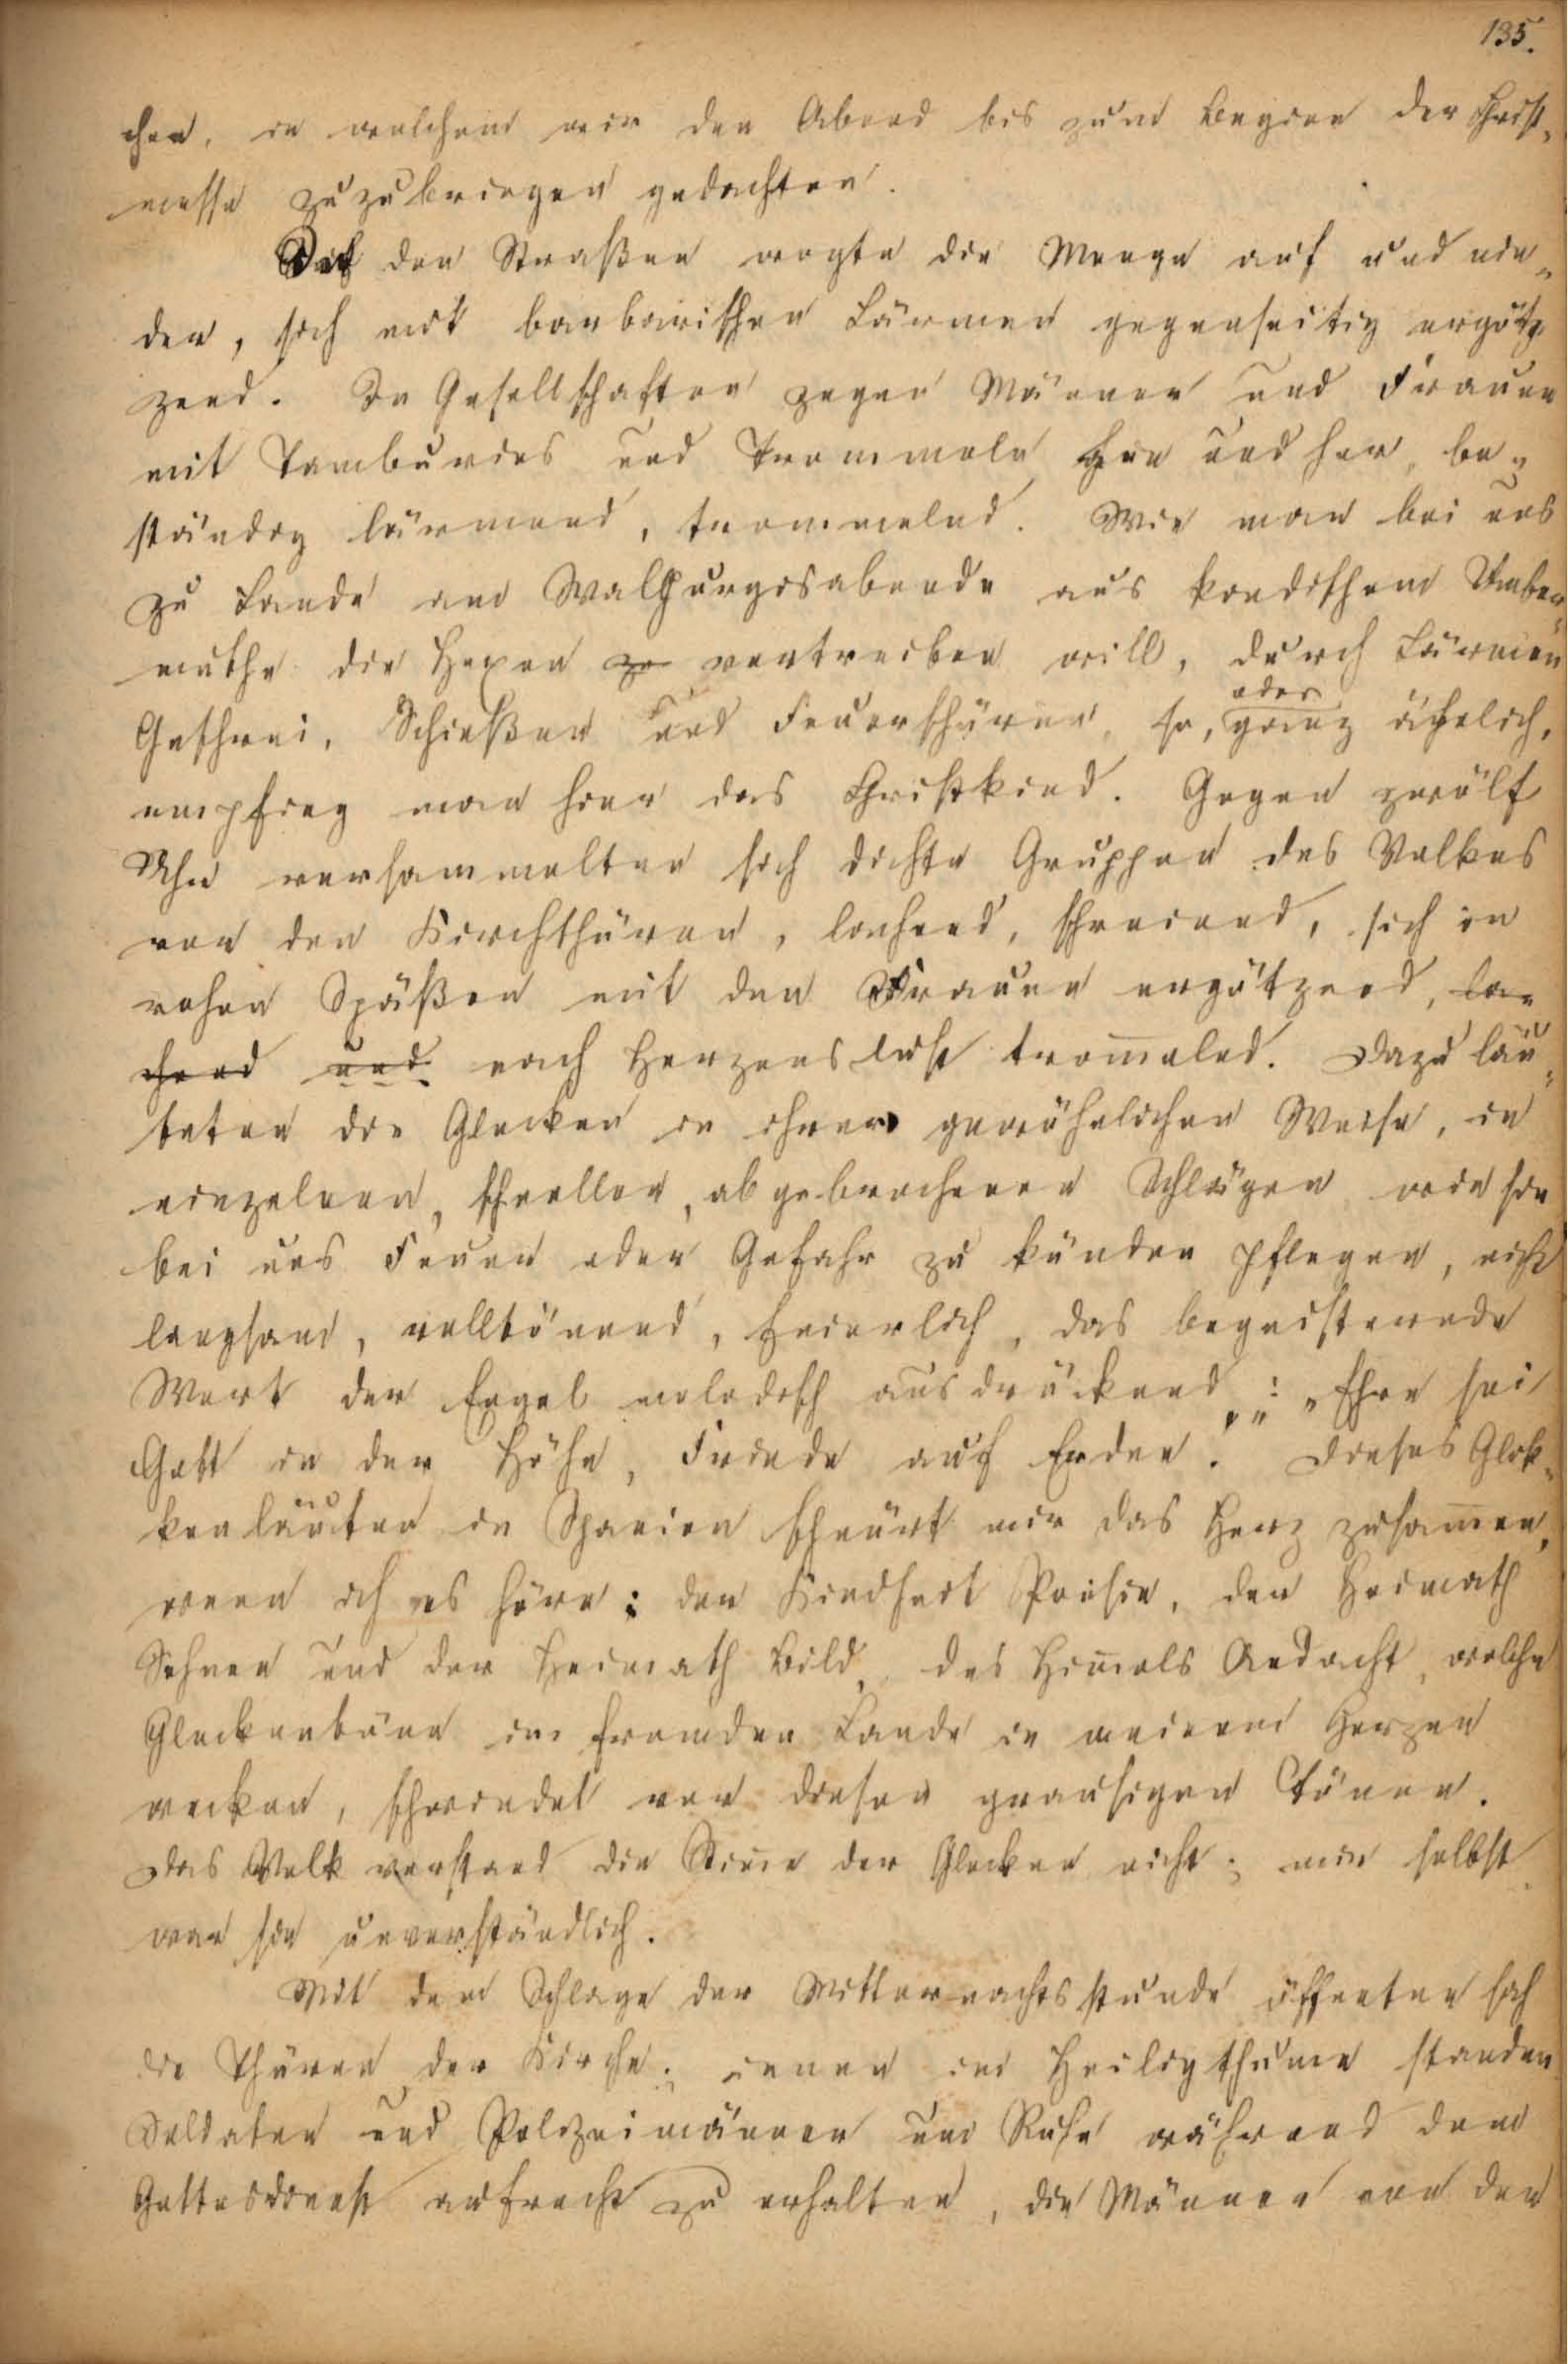 135.
chen, in welchem wir den Abend bis zum Beginn der Christ-
messe zuzubringen gedachten.
Auf den Straßen wogte die Menge auf und nie-
der, sich mit barbarischen Lärmen gegenseitig ergötz-
zend. In Gesellschaften zogen Männer und Frauen
mit Tamburins und Trommeln hin und her, be-
ständig lärmend, trommelnd. Wie man bei uns
zu Lande am Walpurgisabende aus kindischem Ueber-
muthe die Hexen zu vertreiben will, durch Lärmen
Geschrei, Schießen und Feuerschüren, so, oder ganz ähnlich,
empfing man hier das Christkind. Gegen zwölf
Uhr versammelten sich dichte Gruppen des Volkes
vor den Kirchthüren, lachend, schreiend, sich in
rohen Späßen mit den Frauen ergötzend, la-
chend und nach Herzenslust trom̅elnd. Dazu läu-
teten die Glocken in ihrer gewöhnlichen Weise, in
einzelnen, schnellen, abgebrochenen Schlägen wie sie
bei uns Feuer oder Gefahr zu künden pflegen, nicht
langsam, volltönend, feierlich, das begeisternde
Wort der Engel melodisch ausdrückend: „Ehre sei
Gott in der Höhe, Friede auf Erden." Dieses Glok-
kenläuten in Spanien schnürt mir das Herz zusam̅en,
wenn ich es höre: der Kindheit Poesie, der Heimath
Sehnen und der Heimath Bild, des Him̅els Andacht, welche
Glockentöne im fremden Lande in meinem Herzen
wecken, schwindet vor diesen grausigen Tönen.
Das Volk verstand die Stim̅e der Glocken nicht; mir selbst
war sie unverständlich.
Mit dem Schlage der Mitternachtsstunde öffneten sich
die Thüren der Kirche; innen im Heiligthume standen
Soldaten und Polizeimänner um Ruhe während dem
Gottesdienst aufrecht zu erhalten, die Männer von den